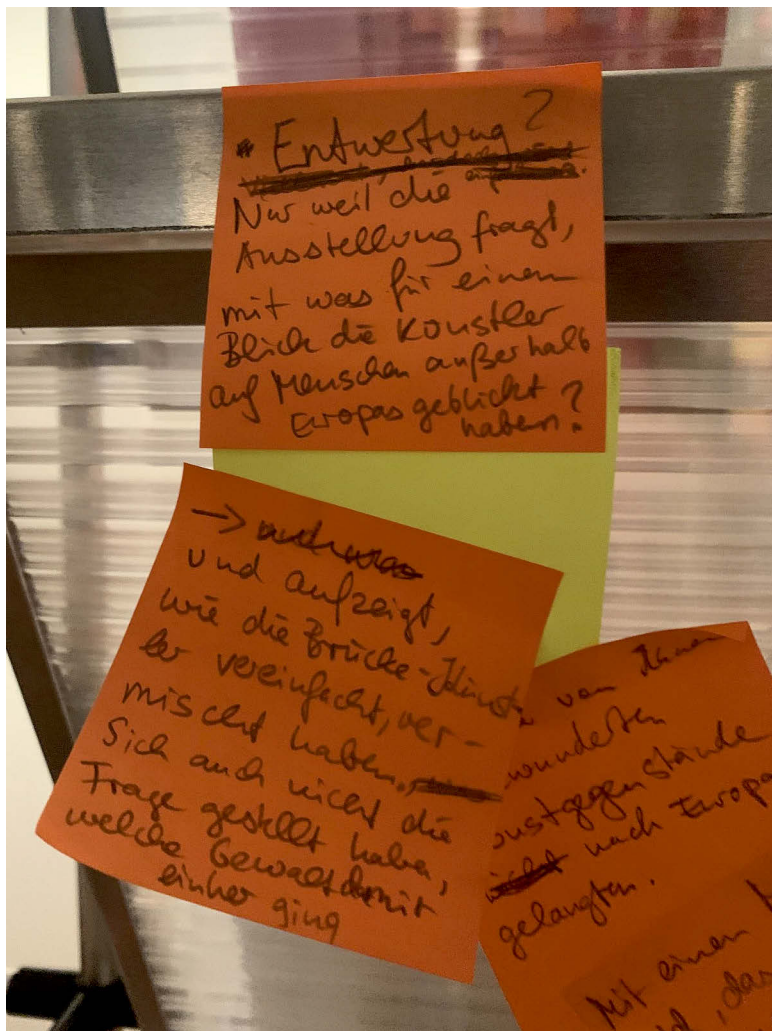 * Entwertung?
Nur weil die
Ausstellung fragt,
mit was für einem
Blick die Künstler
auf Menschen außerhalb
Europas geblickt
haben?
→
und aufzeigt,
wie die Brücke-Künst
ler vereinfacht, ver-
mischt haben,
Sich auch nicht die
Frage gestellt haben,
welche Gewalt damit
einher ging
von ihnen
wunderten
unstgegenstände
nach Europa
gelangten.
Mit einem